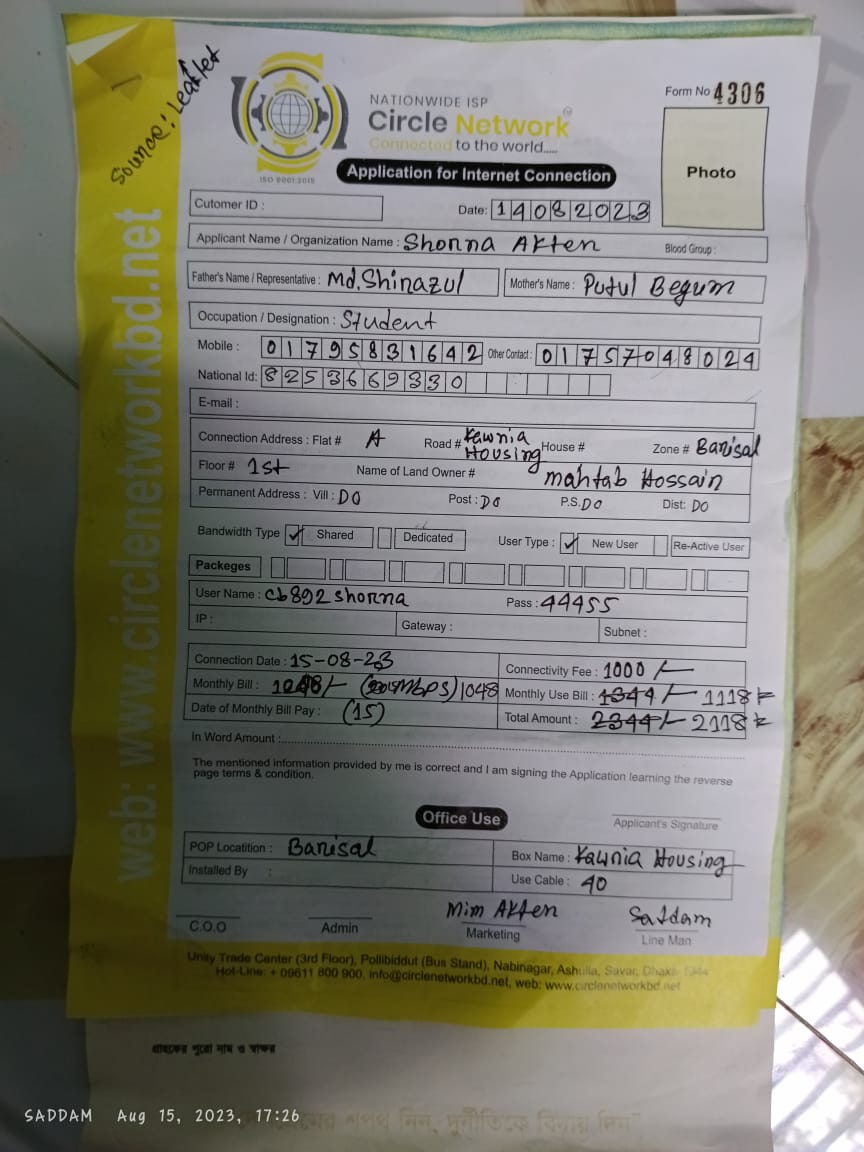 Source: Leaflet
NATIONWIDE ISP
Circle Network
Connected to the world.....
ISO 9001:2015
Form No 4306
Application for Internet Connection
Photo
Cutomer ID :
Date: 14082023
Applicant Name / Organization Name : Shorna Akter Blood Group :
Father's Name / Representative : Md. Shirazul Mother's Name : Putul Begum
Occupation / Designation : Student
Mobile : 01795831642 Other Contact : 01757048024
National Id: 8253669330
E-mail :
Connection Address : Flat # A Road # Kawnia Housing House # Zone # Barisal
Floor # 1st Name of Land Owner # mahtab Hossain
Permanent Address : Vill : DO Post : DO P.S. DO Dist: DO
Bandwidth Type ✓ Shared Dedicated User Type : ✓ New User Re-Active User
Packeges
User Name : cb892shorna Pass : 44455
IP : Gateway : Subnet :
Connection Date : 15-08-23 Connectivity Fee : 1000/-
Monthly Bill : 1048 Monthly Use Bill : 1344/- 1118
Date of Monthly Bill Pay : (15) Total Amount : 2344/- 2118
In Word Amount :
The mentioned information provided by me is correct and I am signing the Application learning the reverse
page terms & condition.
Applicant's Signature
Office Use
POP Locatition : Barisal Box Name : Kawnia Housing
Installed By : Use Cable : 40
Mim Akter Saddam
C.O.O Admin Marketing Line Man
Unity Trade Center (3rd Floor), Pollibiddut (Bus Stand), Nabinagar, Ashulia, Savar, Dhaka 1344
Hot-Line: + 09611 800 900, info@circlenetworkbd.net, web: www.circlenetworkbd.net
web: www.circlenetworkbd.net
গ্রাহকের পুরো নাম ও স্বাক্ষর
শপথ নিন, দুর্নীতিকে বিদায় দিন"
SADDAM Aug 15, 2023, 17:26